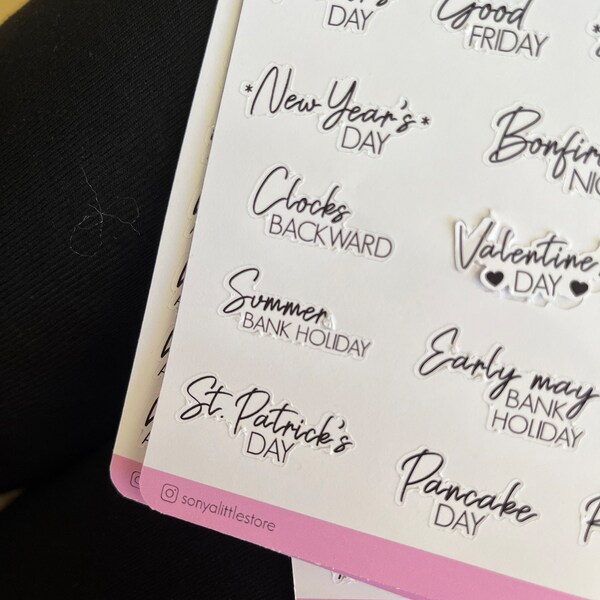 DAY
Good
FRIDAY
*New Year's*
DAY
Clocks
BACKWARD
Valentine
DAY
Summer
BANK HOLIDAY
Early may
BANK
HOLIDAY
St. Patrick's
DAY
Pancake
DAY
sonyalittlestore